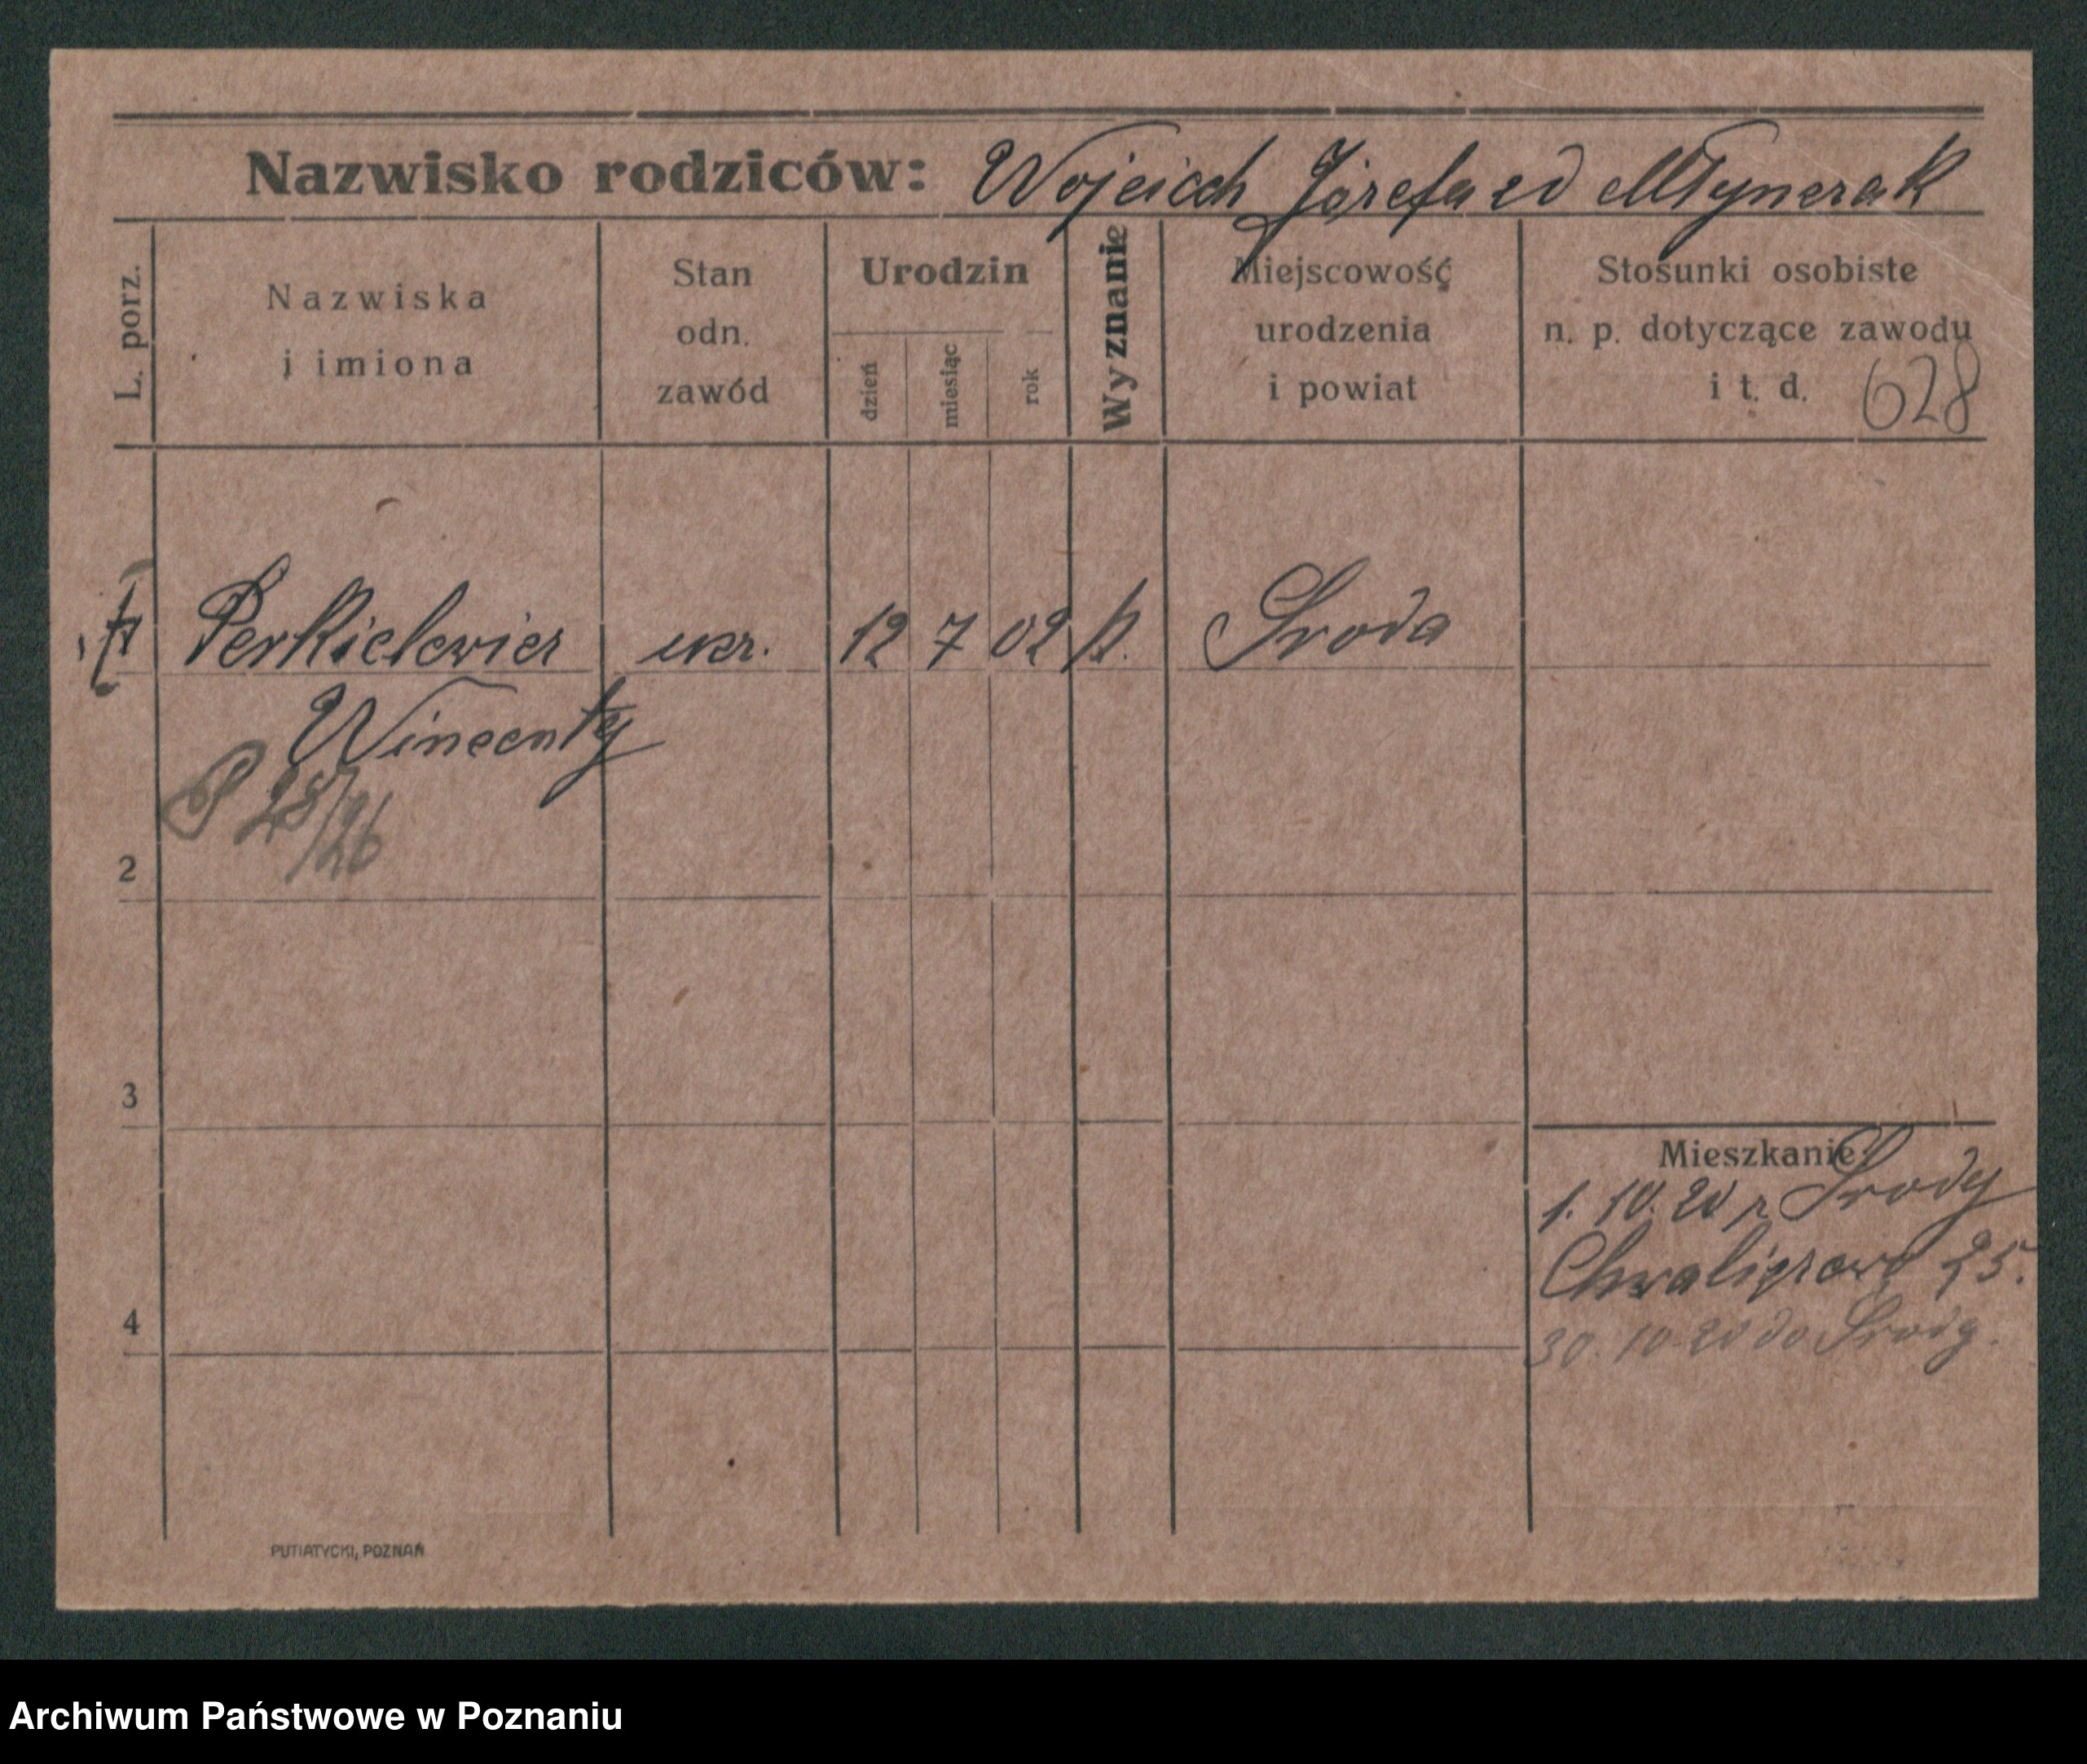 Nazwisko rodziców: Wojciech Józefa zd Młynczak
L. porz.
Nazwiska
i imiona
Stan
odn.
zawód
Urodzin
dzień
miesiąc
rok
Wyznanie
Miejscowość
urodzenia
i powiat
Stosunki osobiste
n. p. dotyczące zawodu
i t. d. 628
Perkielewicz ucz. 12 7 02 k. Środa
Wincenty
P 28/26
2
3
4
Mieszkanie:
1. 10. 20 z Środy
30. 10 20 do Środy.
PUTIATYCKI, POZNAŃ
Archiwum Państwowe w Poznaniu